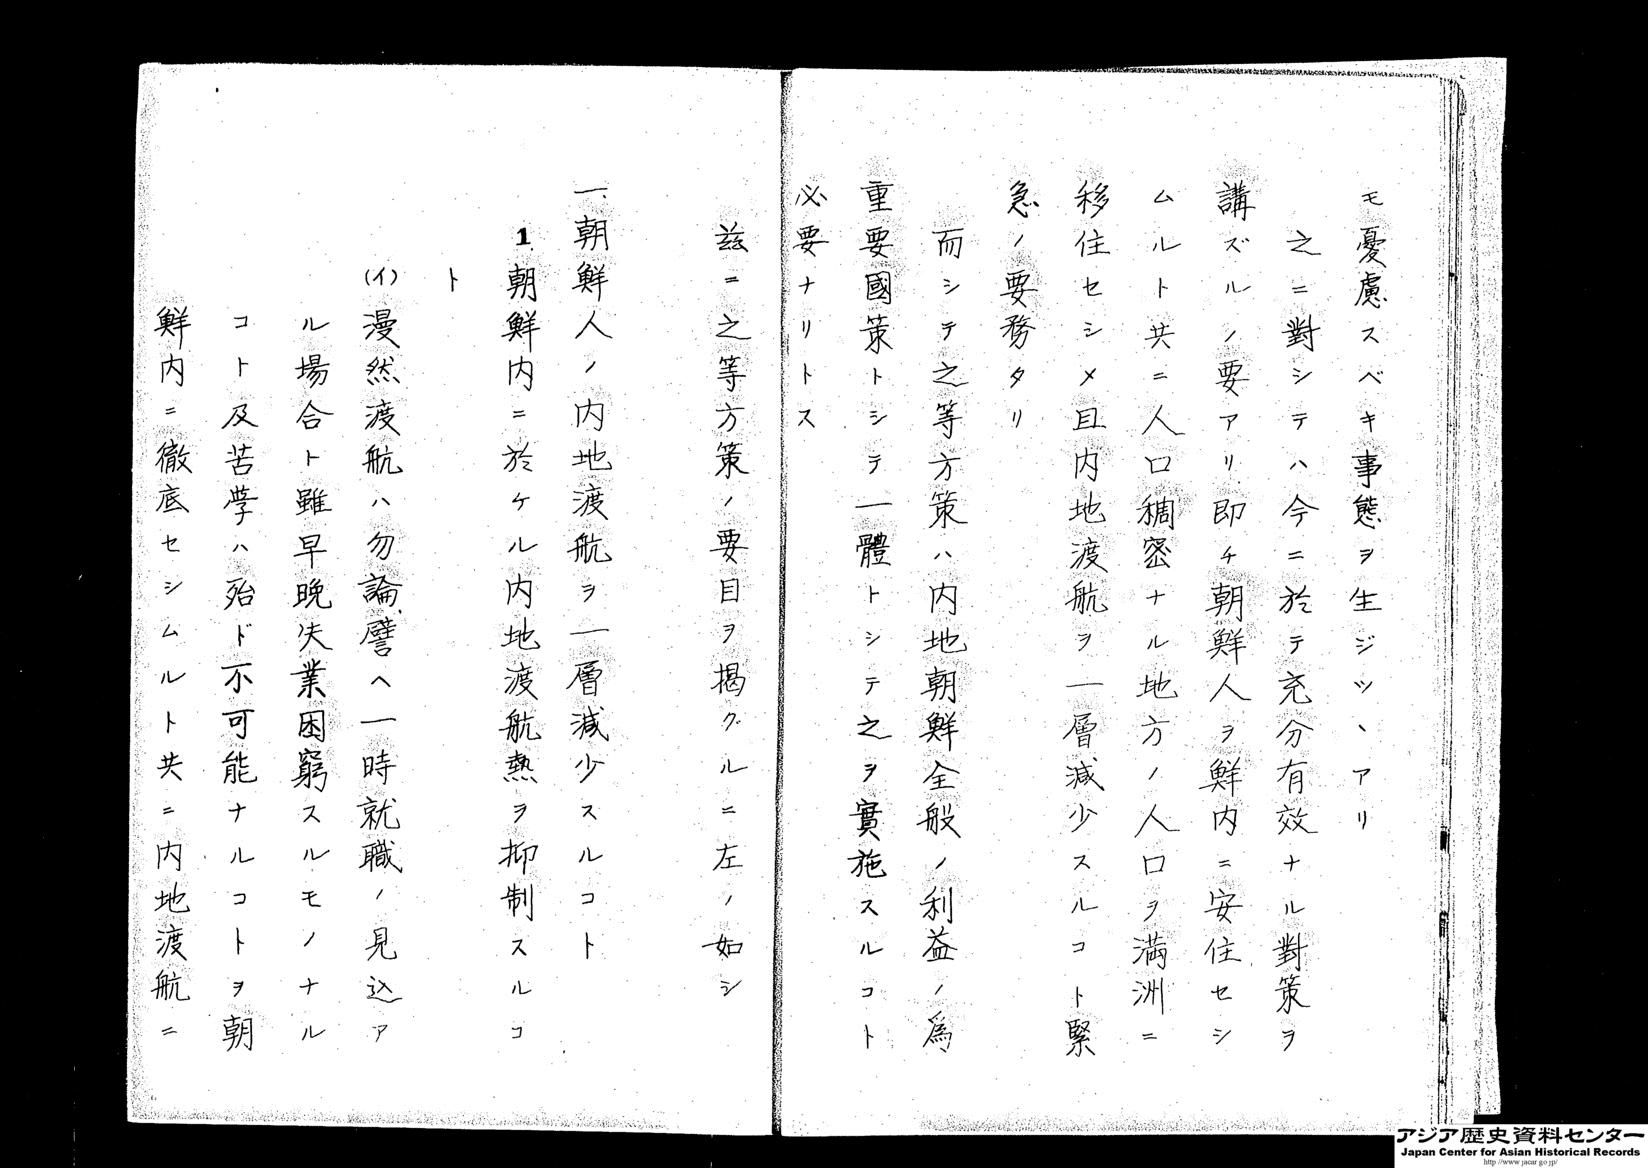 モ憂慮スベキ事態ヲ生ジツヽアリ
之ニ對シテハ今ニ於テ充分有效ナル對策ヲ
講ズルノ要アリ即チ朝鮮人ヲ鮮内ニ安住セシ
ムルト共ニ人口稠密ナル地方ノ人口ヲ満洲ニ
移住セシメ且内地渡航ヲ一層減少スルコト緊
急ノ要務タリ
而シテ之等方策ハ内地朝鮮全般ノ利益ノ為、
重要國策トシテ一體トシテ之ヲ實施スルコト
必要ナリトス
茲ニ之等方策ノ要目ヲ掲グルニ左ノ如シ
一、朝鮮人ノ内地渡航ヲ一層減少スルコト
1 朝鮮内ニ於ケル内地渡航熱ヲ抑制スルコ
ト
(イ)漫然渡航ハ勿論、譬ヘ一時就職ノ見込ア
ル場合ト雖早晩失業困窮スルモノナル
コト及苦學ハ殆ド不可能ナルコトヲ朝
鮮内ニ徹底セシムルト共ニ内地渡航ニ
アジア歴史資料センター
Japan Center for Asian Historical Records
http://www.jacar.go.jp/